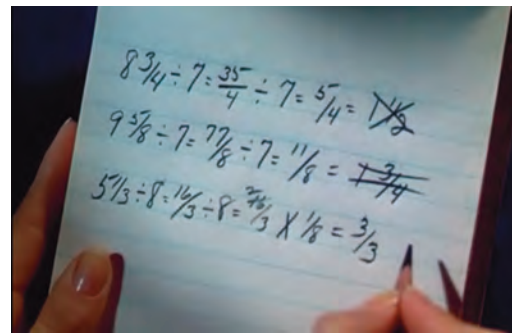 8 3/4 ÷ 7 = 35/4 ÷ 7 = 5/4 = 1 1/2
9 5/8 ÷ 7 = 77/8 ÷ 7 = 11/8 = 1 3/4
5 1/3 ÷ 8 = 16/3 ÷ 8 = 16/3 X 1/8 = 3/3